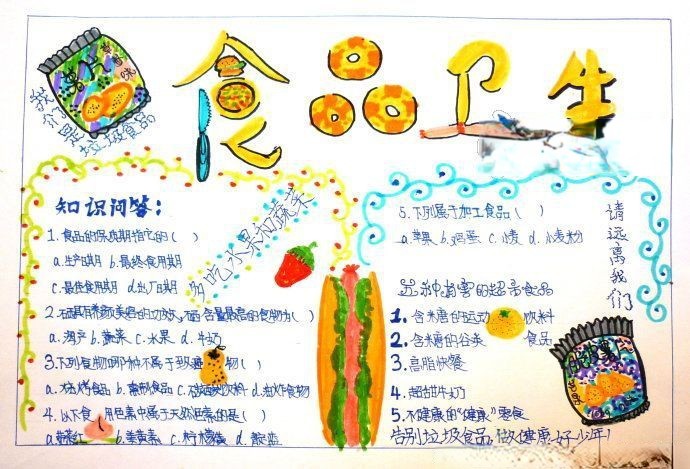 食品卫生
薯片
味
我们是
垃圾食品
知识问答：
多吃水果和蔬菜
1.食品的保质期指它的（ ）
a.生产日期 b.最终食用期
c.最佳食用期 d.出厂日期
2.硒具有养颜美容的功效，硒含量最高的食物为（ ）
a.海产 b.蔬菜 c.水果 d.牛奶
3.下列食物哪种不属于致癌 物（ ）
a.烧烤食品 b.熏制食品 c.碳酸饮料 d.油炸食物
4.以下食 用色素中属于天然色素的是（ ）
a. b.姜黄素 c.柠檬黄 d.靛蓝
5.下列属于加工食品（ ）
a.苹果 b.鸡蛋 c.小麦 d.小麦粉
请远离我们
五种有害的超市食品
1.含糖的运动 饮料
2.含糖的谷类 食品
3.高脂快餐
4.超甜牛奶
5.不健康的“健康”零食
告别垃圾食品，做健康好少年！